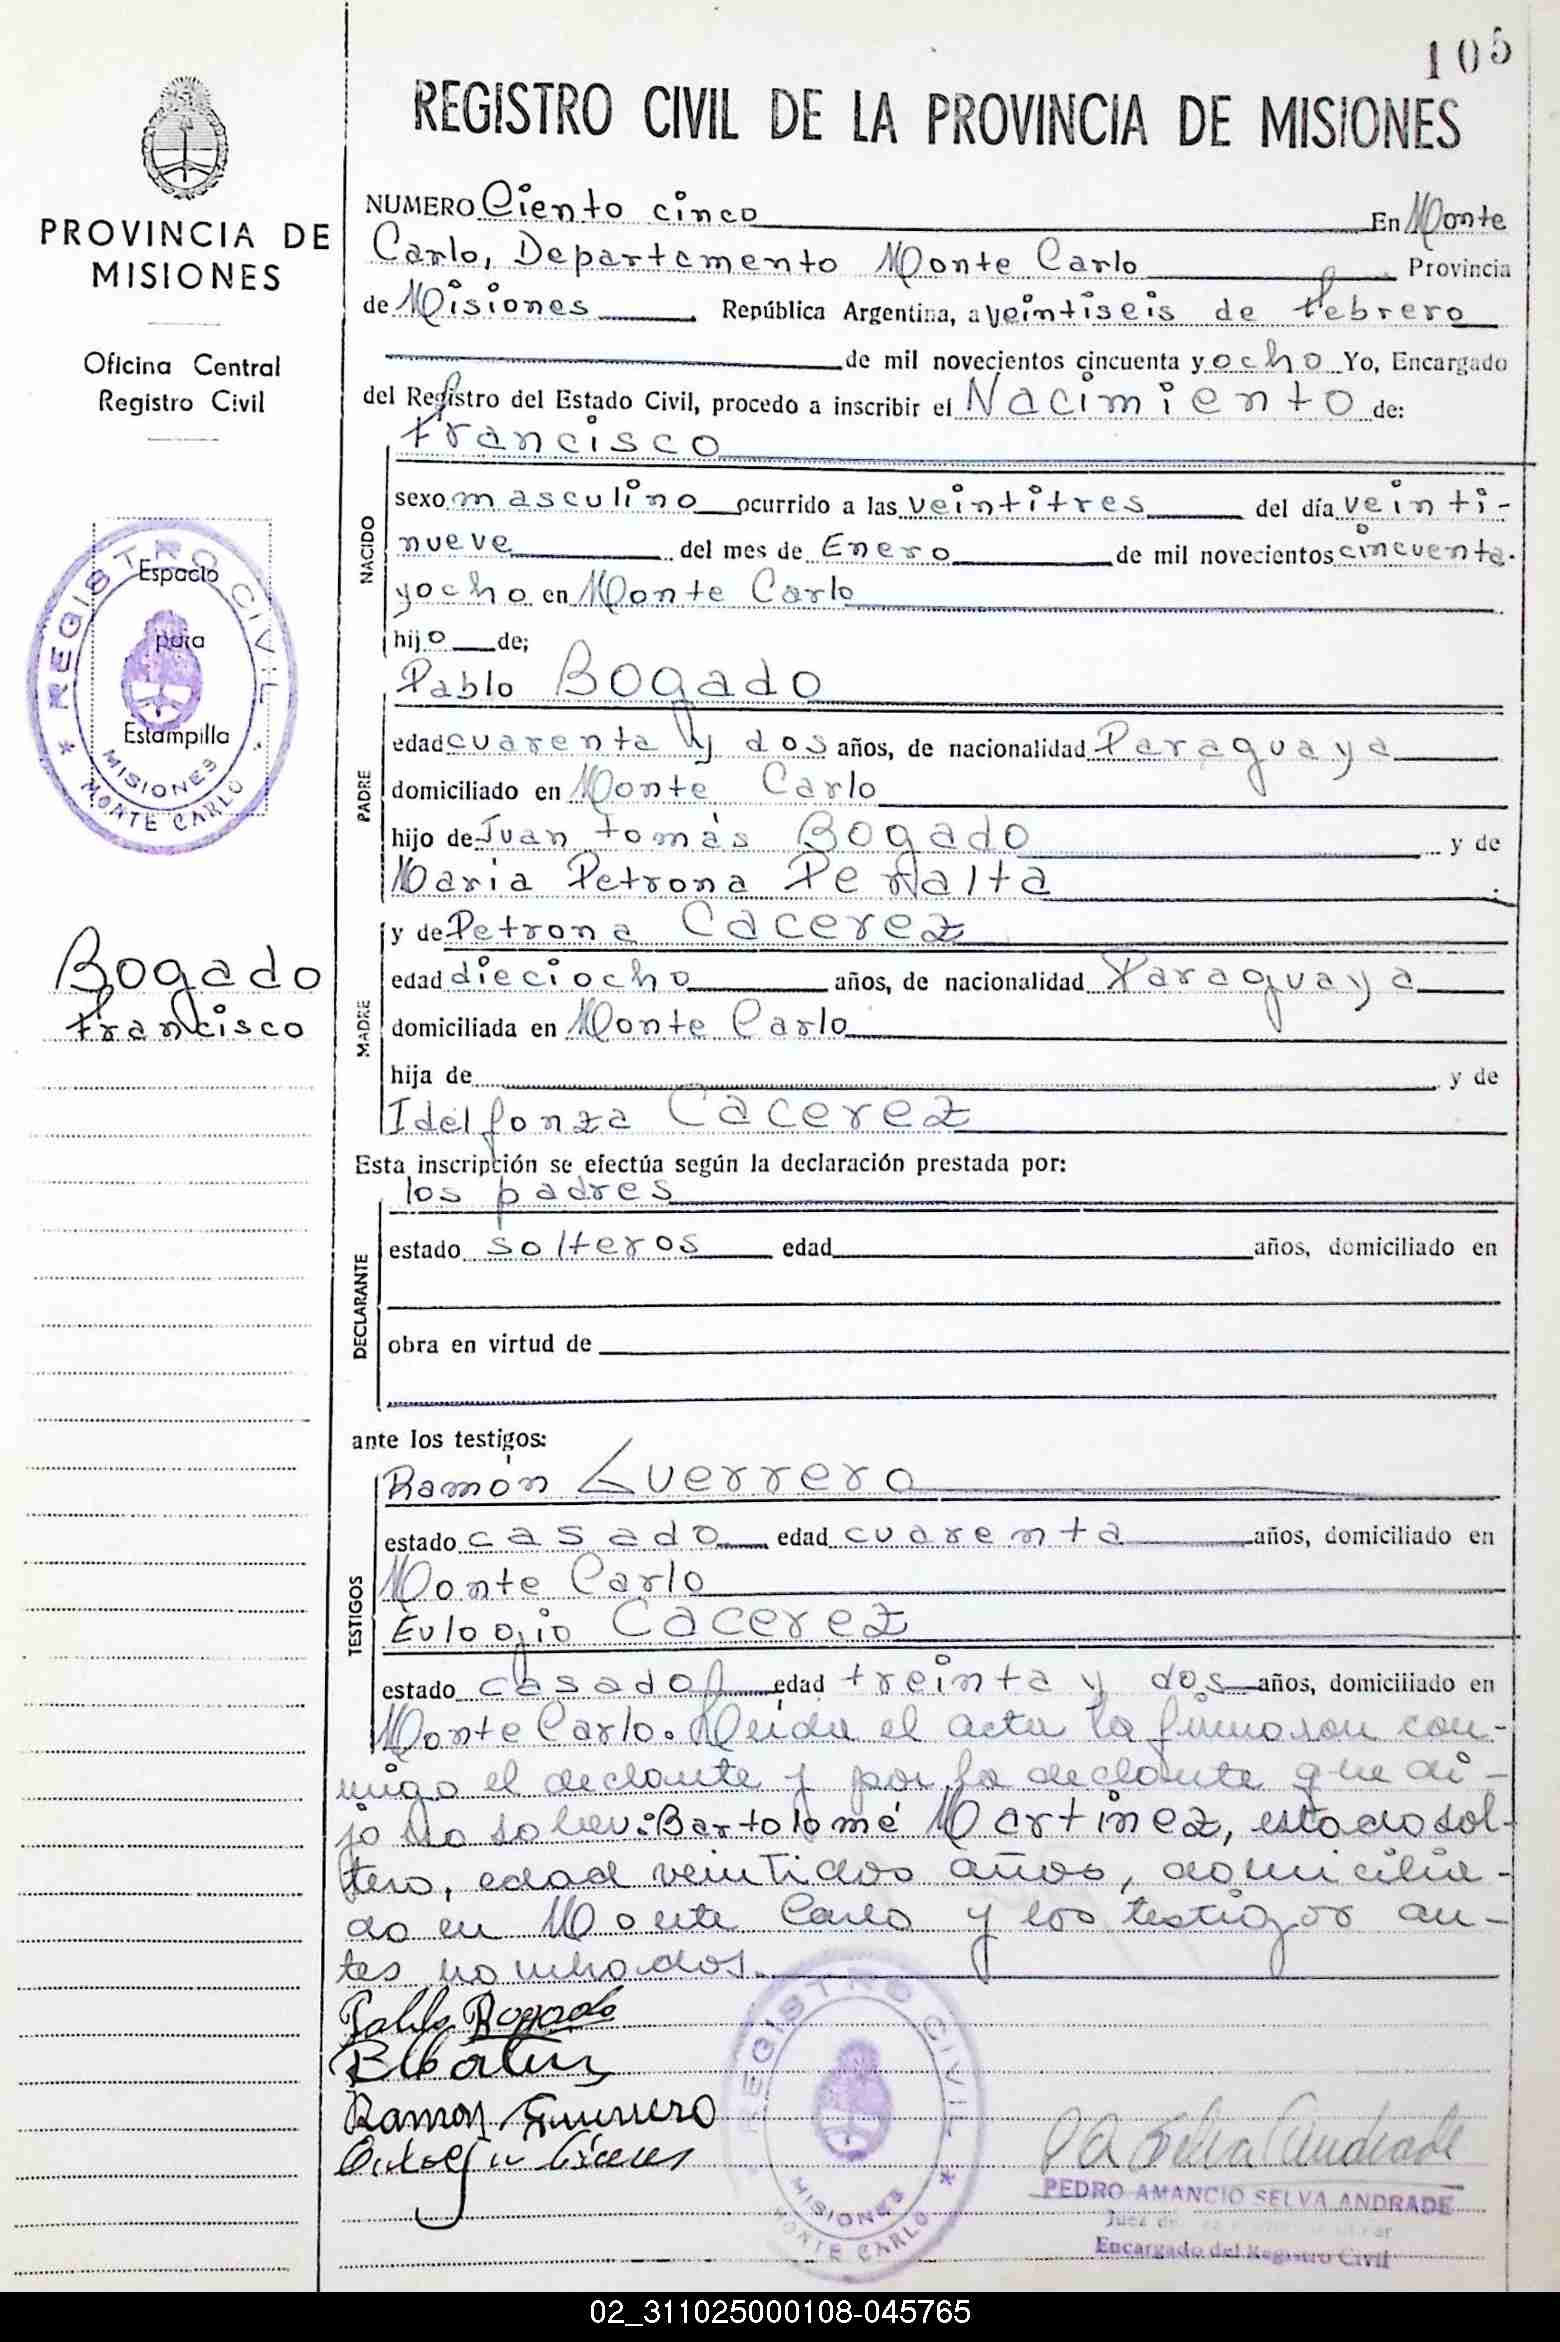 105
REGISTRO CIVIL DE LA PROVINCIA DE MISIONES
PROVINCIA DE
MISIONES
Oficina Central
Registro Civil
REGISTRO CIVIL
Espacio
para
Estampilla
MISIONES
* MONTE CARLO *
Bogado
Francisco
NUMERO Ciento cinco En Monte
Carlo, Departamento Monte Carlo Provincia
de Misiones República Argentina, a veintiseis de febrero
de mil novecientos cincuenta y ocho Yo, Encargado
del Registro del Estado Civil, procedo a inscribir el Nacimiento de:
NACIDO
Francisco
sexo masculino ocurrido a las veintitres del día veinti-
nueve del mes de Enero de mil novecientos cincuenta
y ocho en Monte Carlo
hijo de;
PADRE
Pablo Bogado
edad cuarenta y dos años, de nacionalidad Paraguaya
domiciliado en Monte Carlo
hijo de Juan tomás Bogado y de
Maria Petrona Peralta
MADRE
y de Petrona Cacerez
edad dieciocho años, de nacionalidad Paraguaya
domiciliada en Monte Carlo
hija de y de
Idelfonza Cacerez
Esta inscripción se efectúa según la declaración prestada por:
DECLARANTE
los padres
estado solteros edad años, domiciliado en
obra en virtud de
ante los testigos:
TESTIGOS
Ramón Guerrero
estado casado edad cuarenta años, domiciliado en
Monte Carlo
Eulogio Cacerez
estado casado edad treinta y dos años, domiciliado en
Monte Carlo. Leida el acta la firmaron con-
migo el declante y por la declante que di-
jo no saber: Bartolomé Martinez, estado sol-
tero, edad veintidos años, domicilia-
do en Monte Carlo y los testigos an-
tes nombrados.
Pablo Bogado
Ramon Guerrero
REGISTRO CIVIL
MISIONES
MONTE CARLO *
P A Selva Andrade
PEDRO AMANCIO SELVA ANDRADE
Juez de
Encargado del Registro Civil
02_311025000108-045765